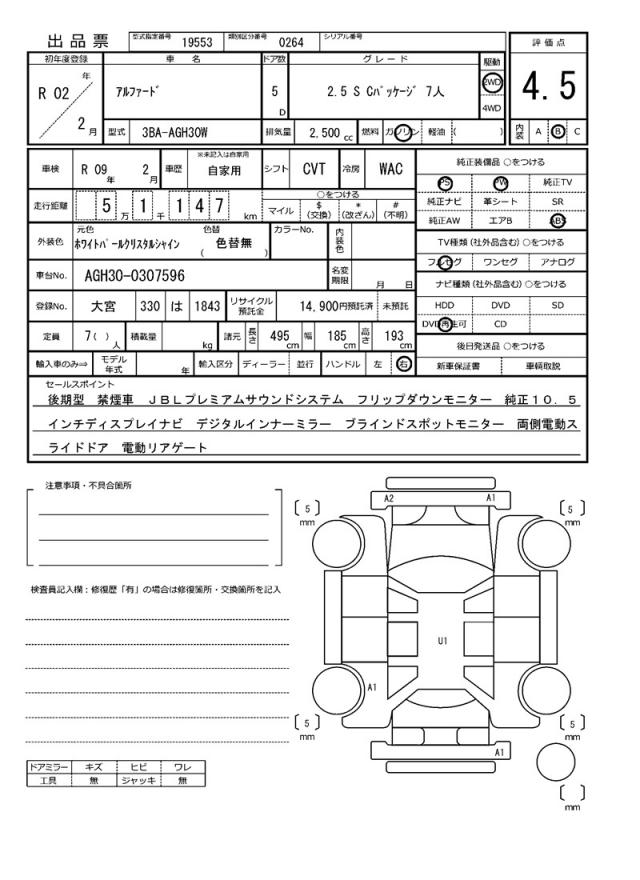 出品票 型式指定番号 19553 類別区分番号 0264 シリアル番号
評価点
4.5
内装 A B C
初年度登録 車名 ドア数 グレード 駆動
R 02 年 2 月
アルファード 5 D 2.5 S Cパッケージ 7人 2WD 4WD
型式 3BA-AGH30W 排気量 2,500 cc 燃料 ガソリン 軽油 ( )
車検 R 09 年 2 月 車歴 ※未記入は自家用 自家用 シフト CVT 冷房 WAC
走行距離 5 万 1 千 1 4 7 km
○をつける
マイル $ (交換) * (改ざん) # (不明)
外装色 元色 ホワイトパールクリスタルシャイン 色替 ( 色替無 ) カラーNo. 内装色
車台No. AGH30-0307596 名変期限 月 日
登録No. 大宮 330 は 1843 リサイクル預託金 14,900円預託済 未預託
定員 7( ) 人 積載量 kg 諸元 長さ 495 cm 幅 185 cm 高さ 193 cm
輸入車のみ⇒ モデル年式 年 輸入区分 ディーラー 並行 ハンドル 左 右
純正装備品 ○をつける
PS PW 純正TV
純正ナビ 革シート SR
純正AW エアB ABS
TV種類 (社外品含む) ○をつける
フルセグ ワンセグ アナログ
ナビ種類 (社外品含む) ○をつける
HDD DVD SD
DVD再生可 CD
後日発送品 ○をつける
新車保証書 車輌取説
セールスポイント
後期型 禁煙車 JBLプレミアムサウンドシステム フリップダウンモニター 純正10.5
インチディスプレイナビ デジタルインナーミラー ブラインドスポットモニター 両側電動ス
ライドドア 電動リアゲート
注意事項・不具合箇所
検査員記入欄:修復歴「有」の場合は修復箇所・交換箇所を記入
A2 A1
5 mm
5 mm
U1
A1
5 mm
5 mm
A1
mm
ドアミラー キズ ヒビ ワレ
工具 無 ジャッキ 無